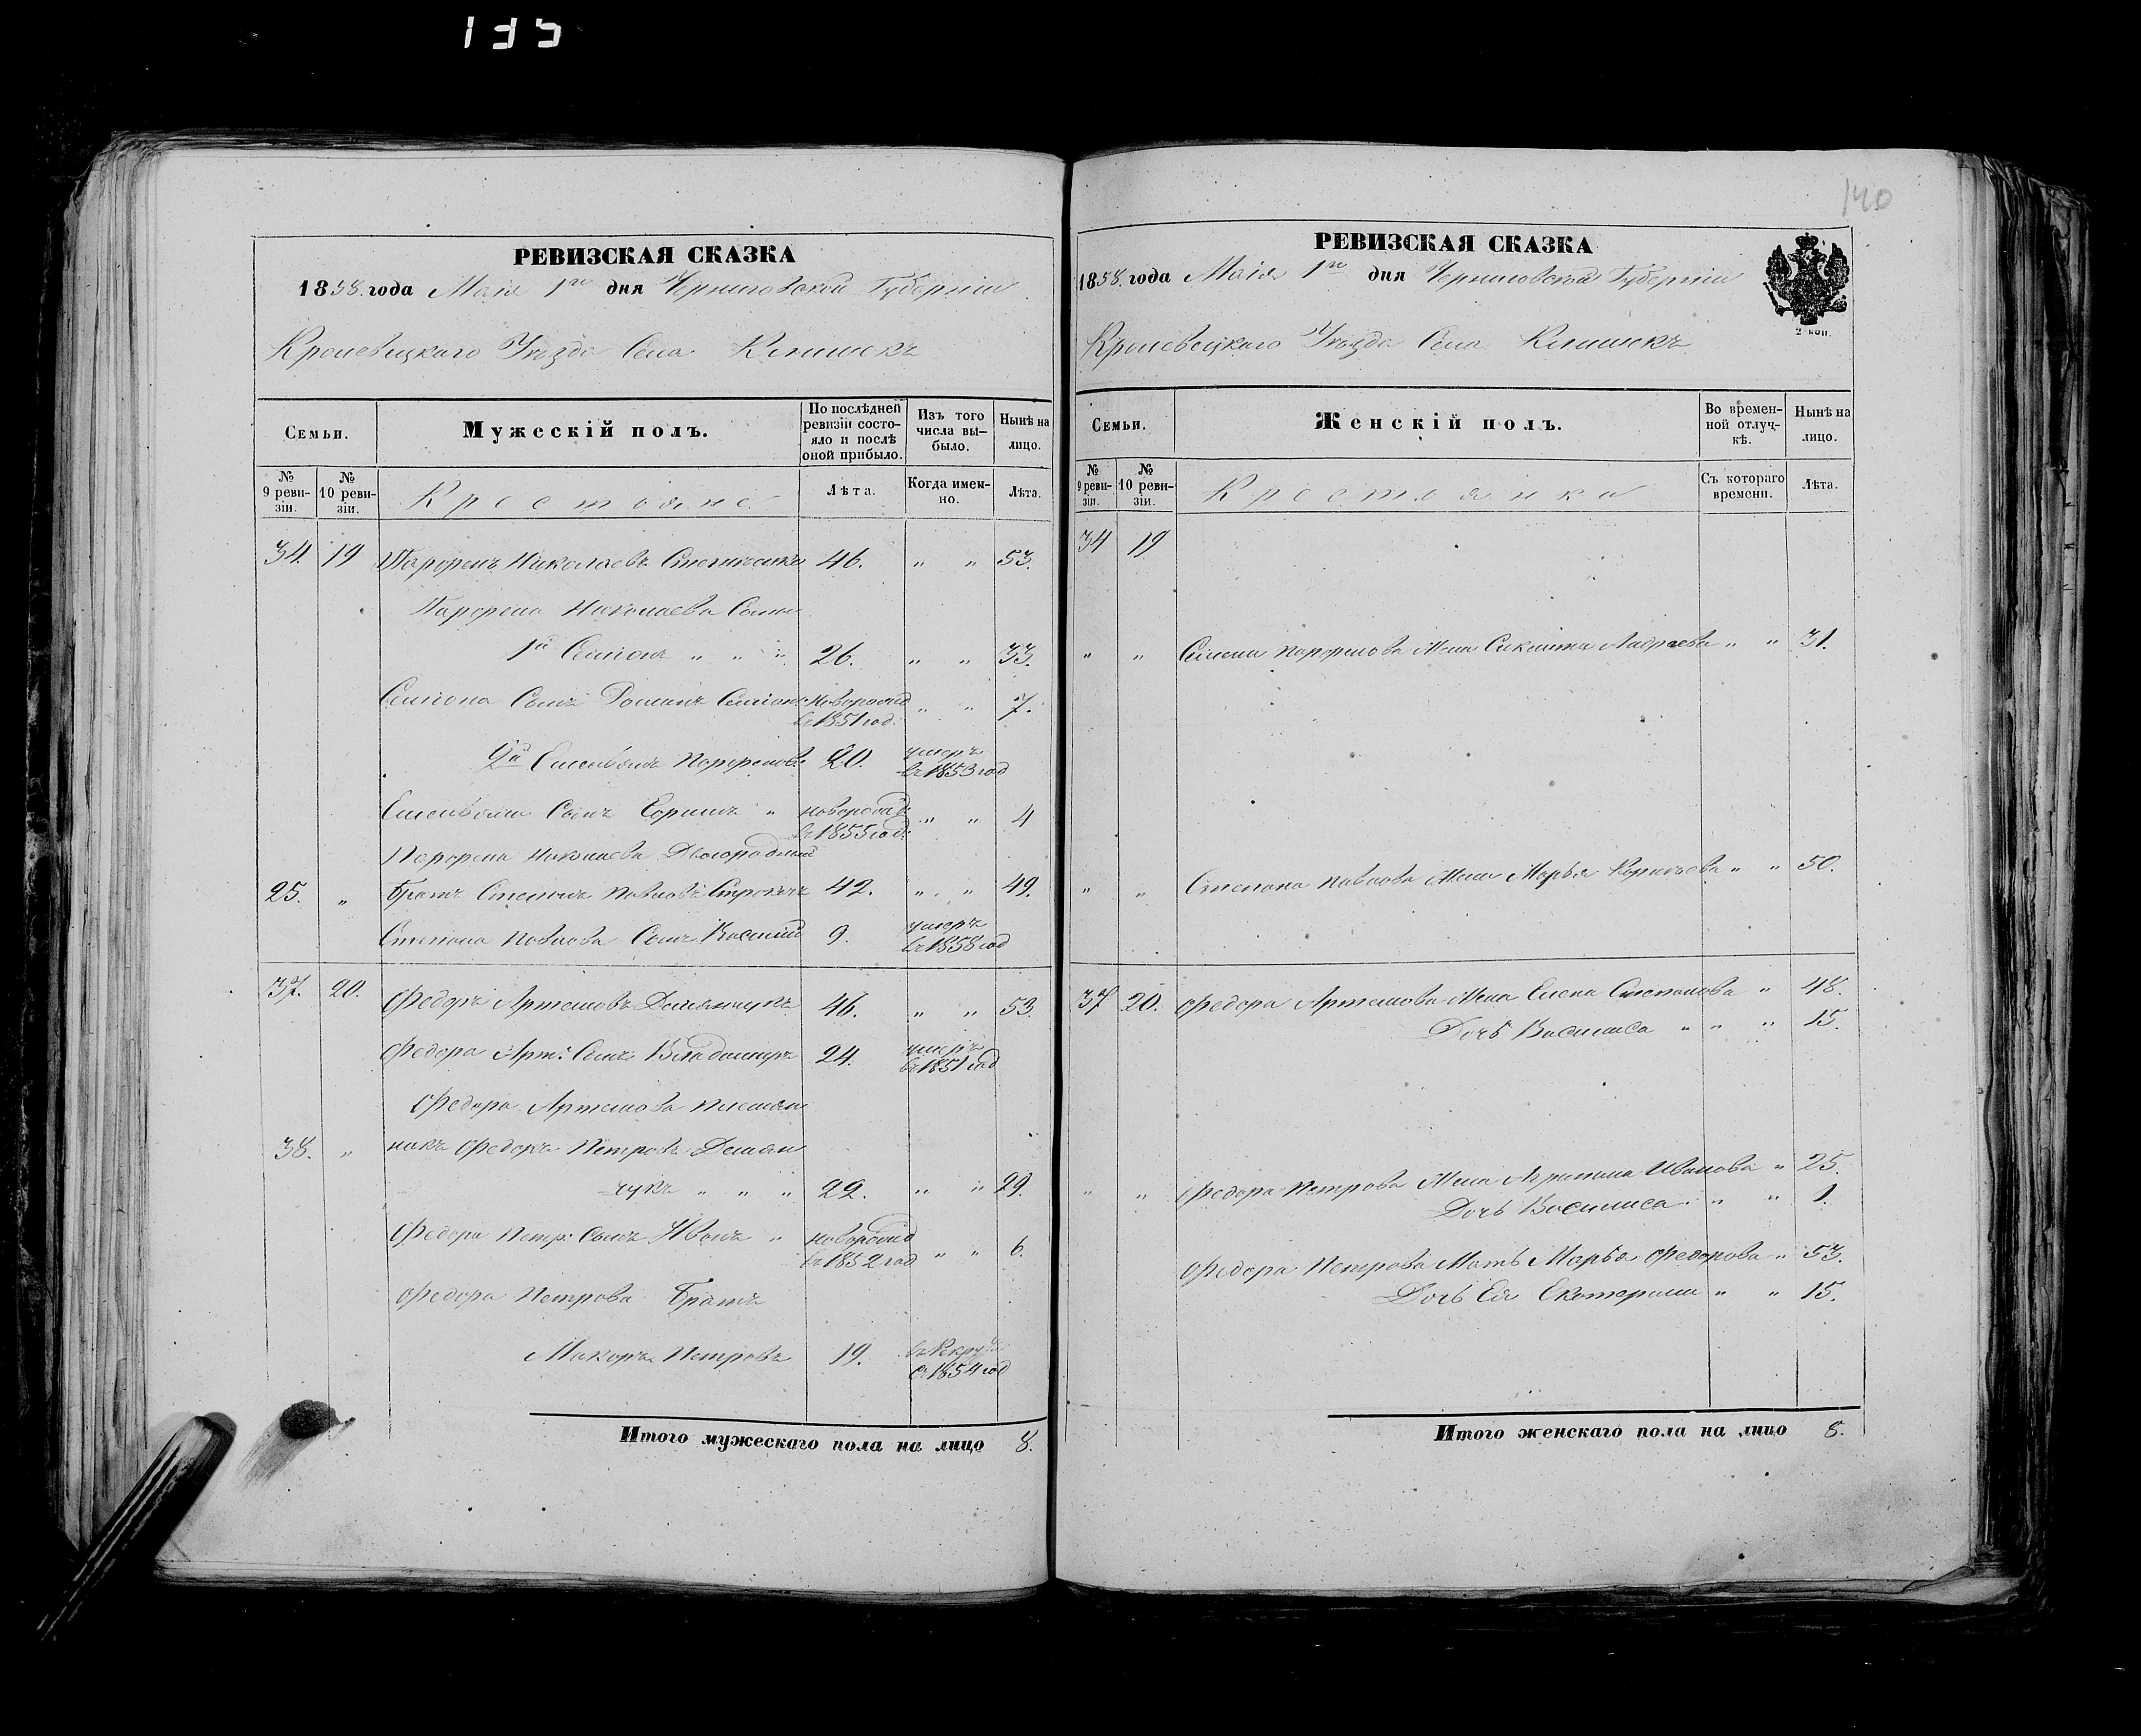 135
РЕВИЗСКАЯ СКАЗКА
1858. года Маія 1го дня Черниговской Губерніи
Кролевецкаго Уѣзда Села Клишекъ
Семьи.
Мужескій полъ.
По послѣдней ревизіи состояло и послѣ оной прибыло.
Изъ того числа выбыло.
Нынѣ на лицо.
№ 9 ревизіи.
№ 10 ревизіи.
Крестьяне
Лѣта.
Когда именно.
Лѣта.
34. 19 Парфенъ Николаевъ 46. " " 53.
Парфена Николаева Сынъ
1й Семіонъ " " " 26. " " 33.
Семіона Сынъ Романъ Семіон: новорожд въ 1851 год. " " 7.
2й Емельянъ Парфеновъ 20. умеръ въ 1853 год
Емельяна Сынъ " новорожд: въ 1855 год: " " 4
Парфена Николаева Двоюродный
25. " братъ Степанъ Павловъ 42. " " 49.
Степана Павлова Сынъ Василий 9. умеръ въ 1858 год
37. 20. Федоръ Артемовъ Демянчукъ 46. " " 53.
Федора Арт: Сынъ Владимиръ 24. умеръ въ 1851 год
Федора Артемова племян
38. " никъ Федоръ Петровъ Демян
чукъ " " " 22. " " 29.
Федора Петр: Сынъ Иванъ " новорожд въ 1852 год " " 6.
Федора Петрова Братъ
Макаръ Петровъ 19. въ Рекру: съ 1854 год
Итого мужескаго пола на лицо 8.
140
РЕВИЗСКАЯ СКАЗКА
1858. года Маія 1го дня Черниговской Губерніи
Кролевецкаго Уѣзда Села Клишекъ
2 коп.
Семьи.
Женскій полъ.
Во временной отлучкѣ.
Нынѣ на лицо.
№ 9 ревизіи.
№ 10 ревизіи.
Крестьянки
Съ котораго времени.
Лѣта.
34 19
" " Семена Парфенова Жена " " 31.
" " Степана Павлова Жена Марья " " 50.
37 20. Федора Артемова Жена Елена Степанова " 48.
Дочь Василиса " " " 15.
" " Федора Петрова Жена Агрипина Иванова " 25.
Дочь Василиса " " 1.
Федора Петрова Мать Марья Федорова " 53.
Дочь Ея Екатерина " " 15.
Итого женскаго пола на лицо 8.